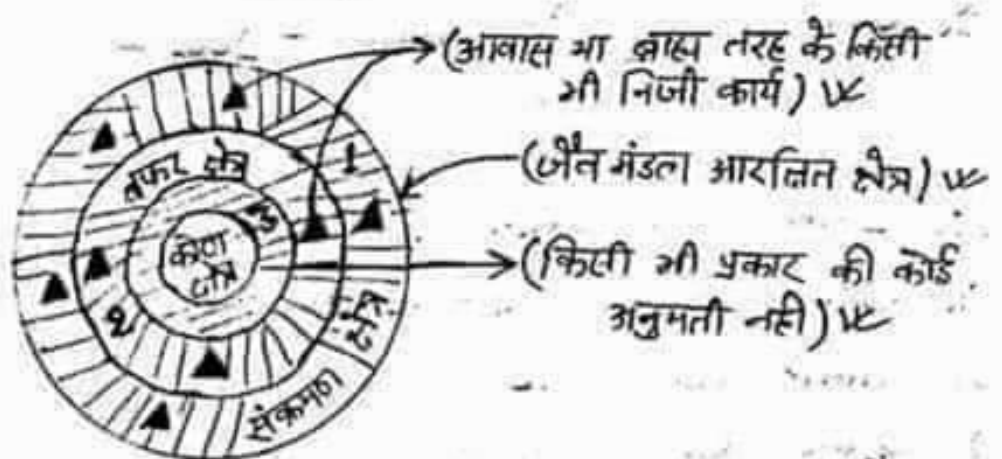 (आवास या बाह्य तरह के किसी
भी निजी कार्य)
(जैव मंडल आरक्षित क्षेत्र)
(किसी भी प्रकार की कोई
अनुमती नही)
बफर क्षेत्र
1
3
कोण
क्षेत्र
2
संक्रमण क्षेत्र